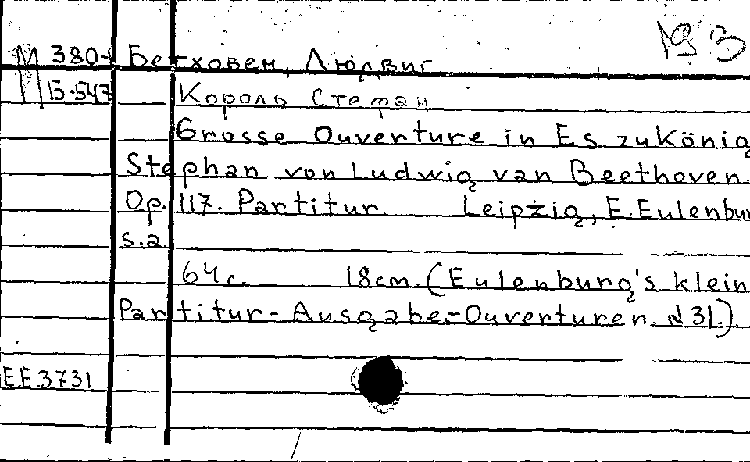 М 380- Бетховен, Людвиг
Б-547 Король Стефан
Grosse Ouverture in Es zu König
Stephan von Ludwig van Beethoven.
Op. 117. Partitur. Leipzig, E. Eulenbur
s.a.
64 с. 18 cm. (Eulenburg's klein
Partitur-Ausgabe.-Ouverturen. N 31.)
EE 3731